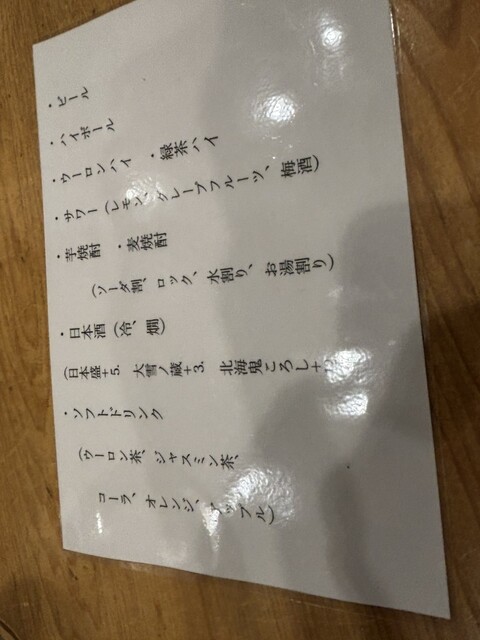 ・ビール
・ハイボール
・ウーロンハイ ・緑茶ハイ
・サワー(レモン、グレープフルーツ、梅酒)
・芋焼酎 ・麦焼酎
(ソーダ割、ロック、水割り、お湯割り)
・日本酒(冷、燗)
(日本盛+5. 大雪ノ蔵+3. 北海鬼ころし+
・ソフトドリンク
(ウーロン茶、ジャスミン茶、
コーラ、オレンジ、アップル)